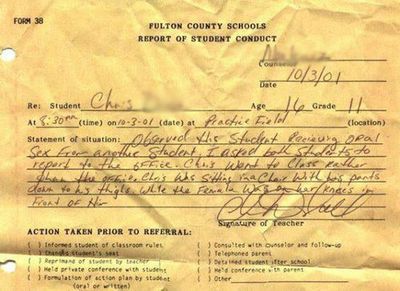 FORM 38
FULTON COUNTY SCHOOLS
REPORT OF STUDENT CONDUCT
Counselor
10/3/01
Date
Re: Student Chris Age 16 Grade 11
At 8:30pm (time) on 10-3-01 (date) at Practice Field (location)
Statement of situation: Observed this Student Recieving oral
Sex From another Student. I asked both Students to
report to the office. Chris Went to Class rather
then the office. Chris Was Sitting in a Chair With his pants
down to his thighs. While the Female Was on her Knees in
Front of Him
Signature of Teacher
ACTION TAKEN PRIOR TO REFERRAL:
( ) Informed student of classroom rules ( ) Consulted with counselor and follow-up
( ) Changed student's seat ( ) Telephoned parent
( ) Reprimand of student by teacher ( ) Detained student after school
( ) Held private conference with student ( ) Held conference with parent
( ) Formulation of action plan by student ( ) Other
(oral or written)